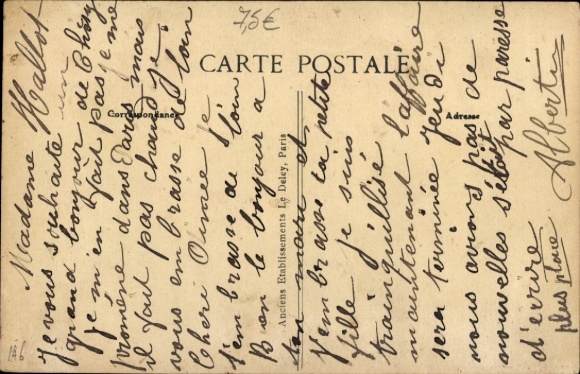 7,5€
CARTE POSTALE
Correspondance
Adresse
Anciens Etablissements Le Deley, Paris
Madame Hallot
je vous souhaite un
grand bonjour de Chez
je m'en fait pas je me
promène dans Paris mais
il fait pas chaud je
vous embrasse de loin
Cheri Aimée je
t'embrasse de loin
Bon le bonjour a
ton mari et
j'embrasse ta petite
fille je suis
tranquillisé
maintenant l'affaire
sera terminée jeudi
nous avions pas de
nouvelles sétait par paresse
d'ecrire Albertin
plus place